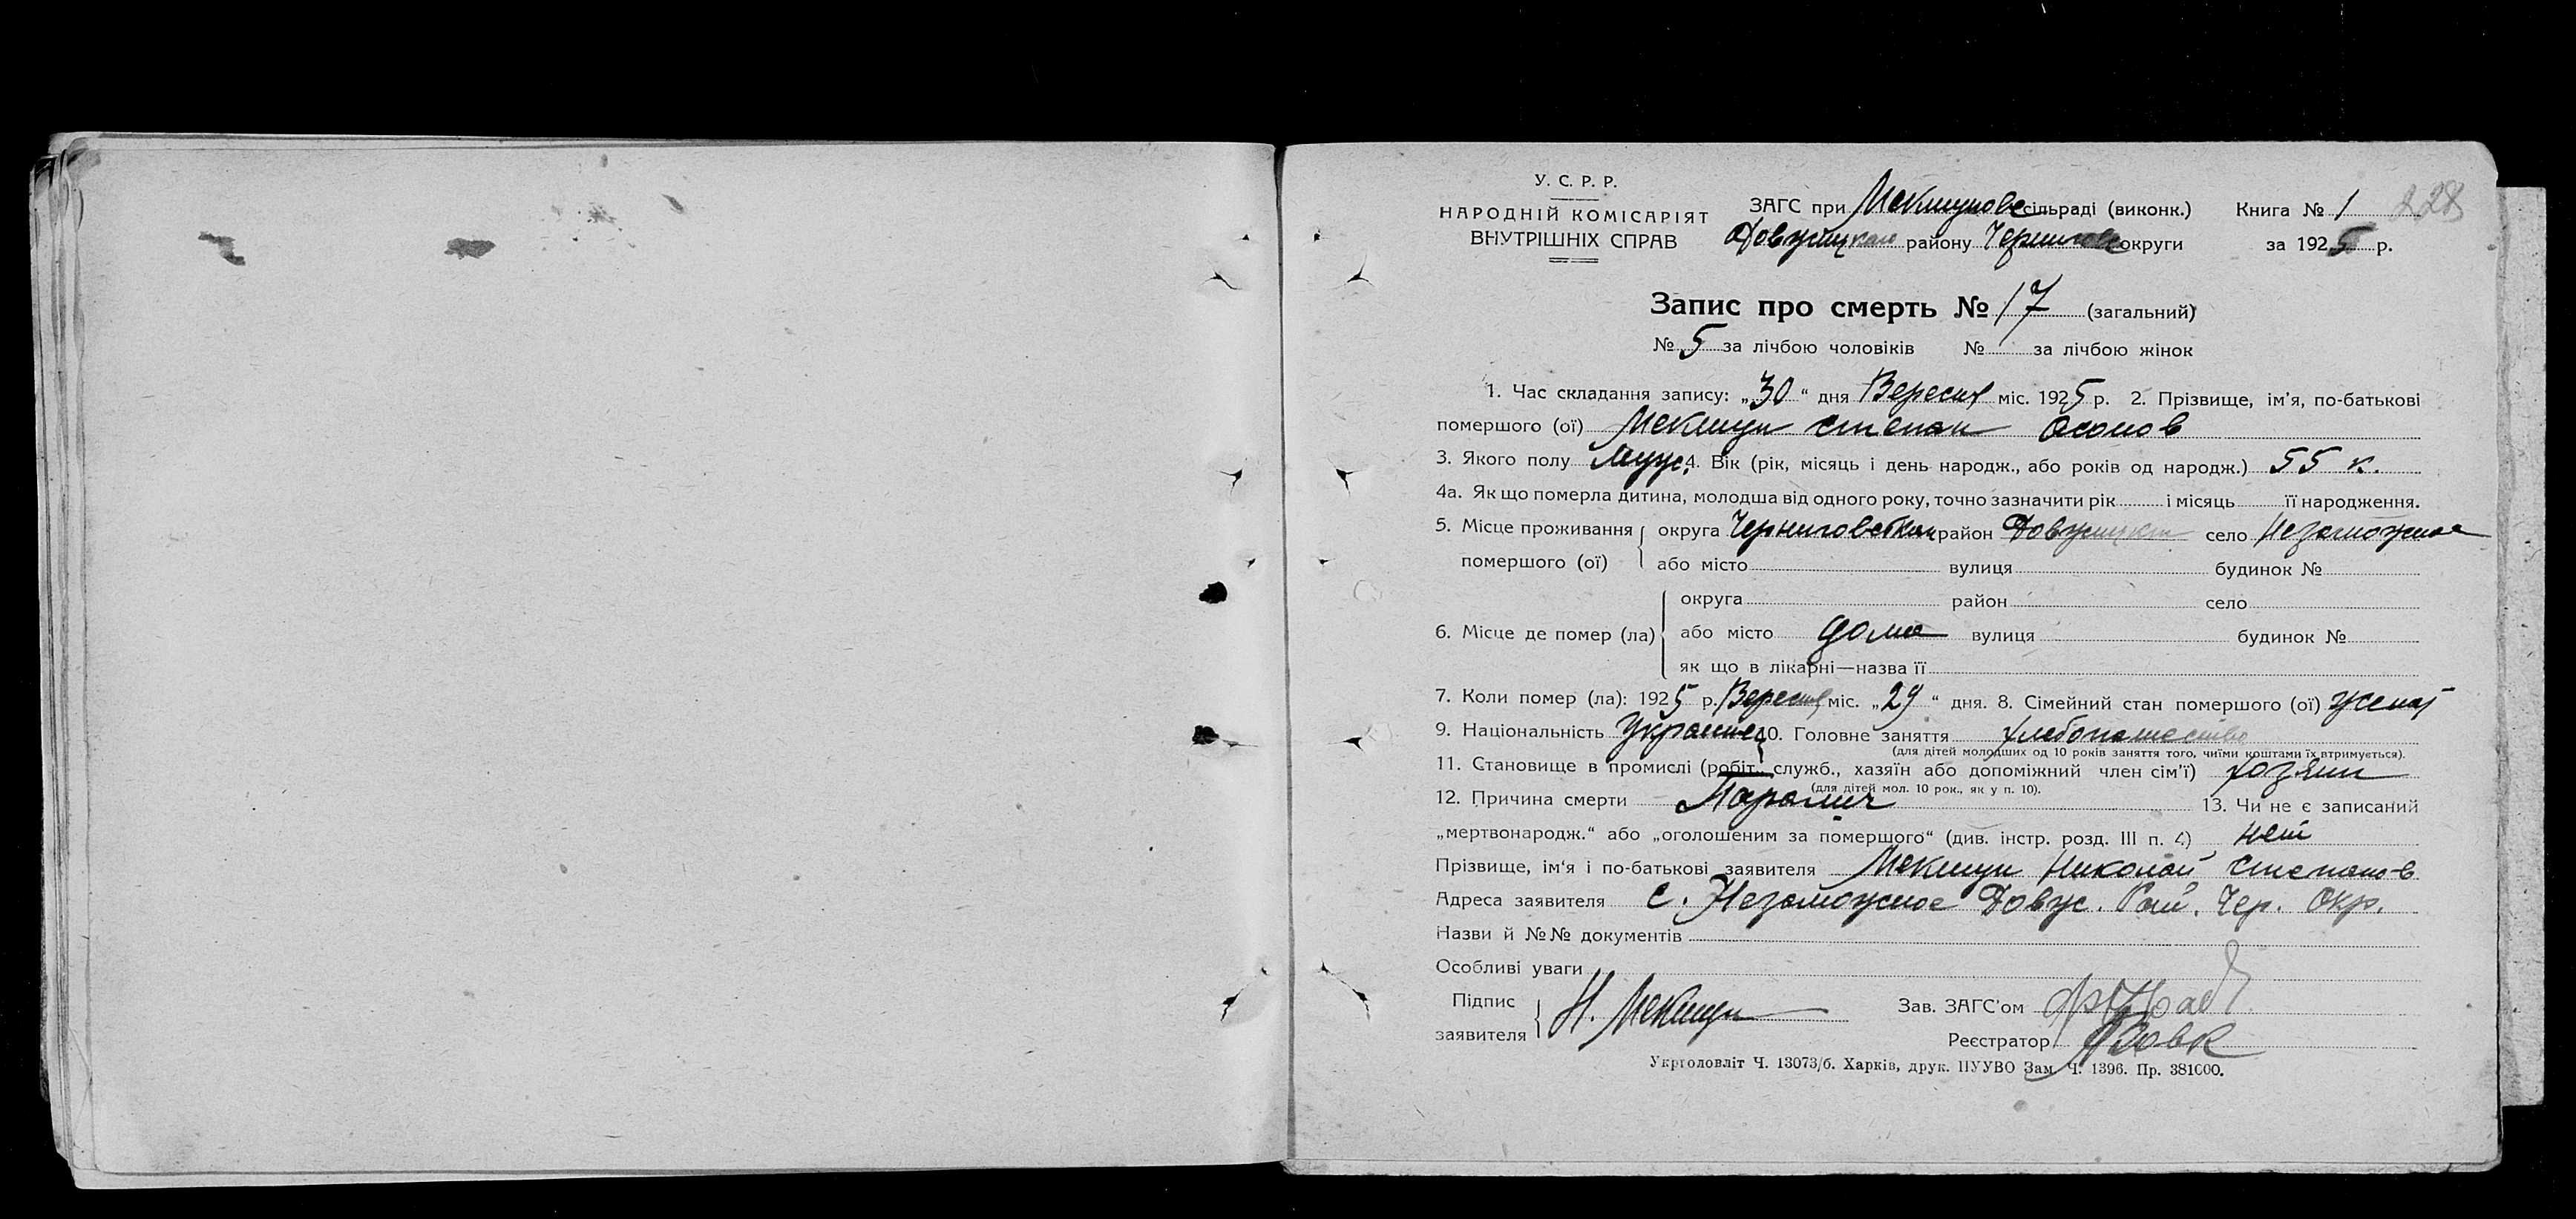 У. С. Р. Р.
НАРОДНІЙ КОМІСАРІЯТ
ВНУТРІШНІХ СПРАВ
ЗАГС при Мекшунове сільраді (виконк.) Книга № 1 228
Довжицкая району Чернигов округи за 1925 р.
Запис про смерть № 17 (загальний)
№ 5 за лічбою чоловіків № за лічбою жінок
1. Час складання запису: „30“ дня Вересня міс. 1925 р. 2. Прізвище, ім'я, по-батькові
померлого (ої) Мекшун Степан Осопов
3. Якого полу Муж. 4. Вік (рік, місяць і день народж., або років од народж.) 55
4а. Як що померла дитина, молодша від одного року, точно зазначити рік і місяць її народження.
5. Місце проживання округа Черниговская район село Незаможное
помершого (ої) або місто вулиця будинок №
округа район село
6. Місце де помер (ла) або місто дома вулиця будинок №
як що в лікарні—назва її
7. Коли помер (ла): 1925 р. Вересня міс. „29“ дня. 8. Сімейний стан помершого (ої) женат
9. Національність Украинец 10. Головне заняття хлебопашество
(для дітей молодших од 10 років заняття того, чиїми коштами їх втримується).
11. Становище в промислі (робіт., служб., хазяїн або допоміжний член сім'ї) хозяин
(для дітей мол. 10 рок., як у п. 10).
12. Причина смерти Паралич 13. Чи не є записаний
„мертвонародж.“ або „оголошеним за помершого“ (див. інстр. розд. III п. 4) нет
Прізвище, ім'я і по-батькові заявителя Мекшун Николай Степанов
Адреса заявителя С. Незаможное Довж. Рай. Чер. Окр.
Назви й №№ документів
Особливі уваги
Підпис
заявителя Н. Мекшун
Зав. ЗАГС'ом
Реєстратор Вовк
Укрголовліт Ч. 13073/б. Харків, друк. ПУУВО Зам. Ч. 1396. Пр. 381000.